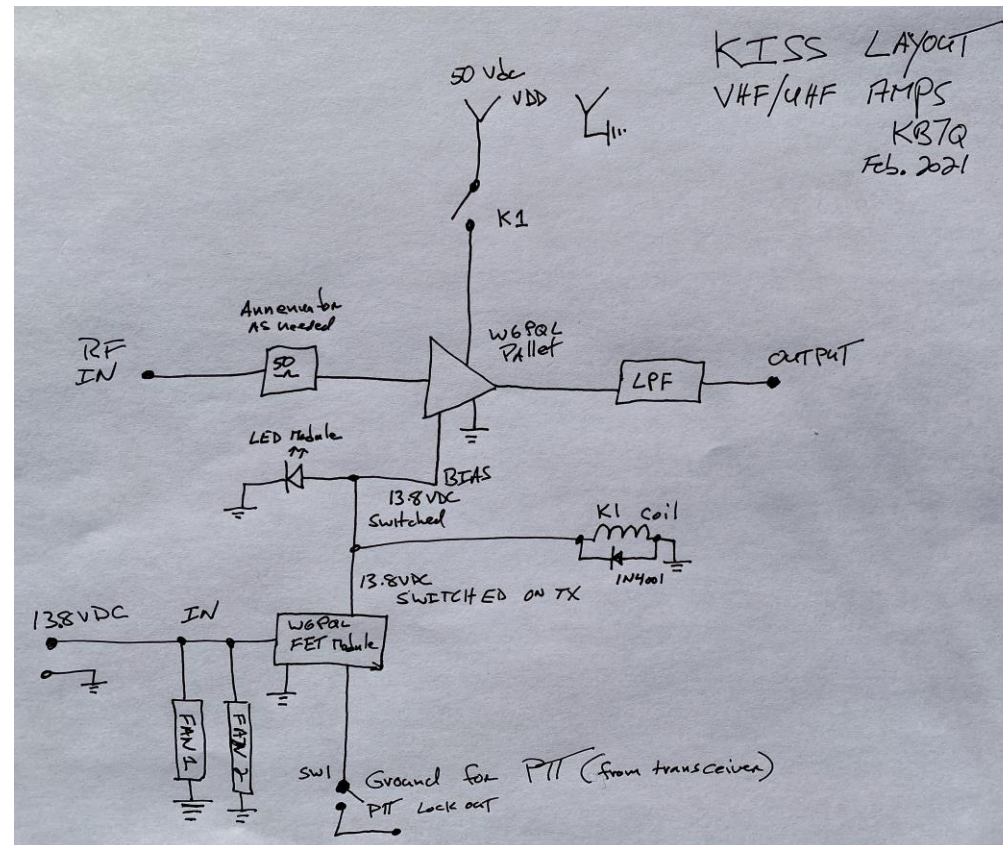 KISS LAYOUT
VHF/UHF AMPS
KB7Q
Feb. 2021
50 Vdc
VDD
K1
Attenuator
AS needed
RF
IN
50
Ω
W6PQL
PAllet
LPF
OUTPUT
LED Module
BIAS
13.8 VDC
Switched
K1 coil
1N4001
13.8VDC
SWITCHED ON TX
13.8VDC IN
W6PQL
FET Module
FAN 1
FAN 2
SW1
Ground for PTT (from transceiver)
PTT Lock out